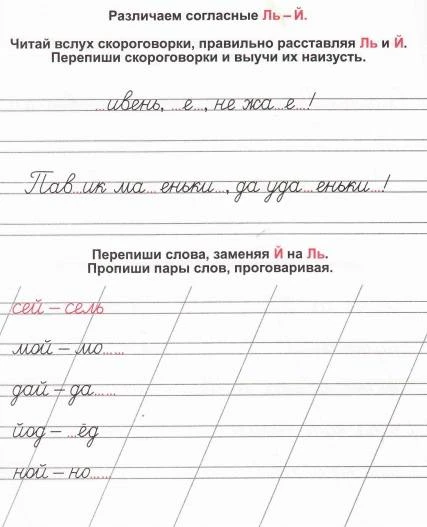 Различаем согласные Ль – Й.
Читай вслух скороговорки, правильно расставляя Ль и Й.
Перепиши скороговорки и выучи их наизусть.
...ивень, ...е..., не жа...е...!
Пав...ик ма...еньки..., да уда...еньки...!
Перепиши слова, заменяя Й на Ль.
Пропиши пары слов, проговаривая.
сей – сель
мой – мо......
дай – да......
йод – ...ёд
ной – но......